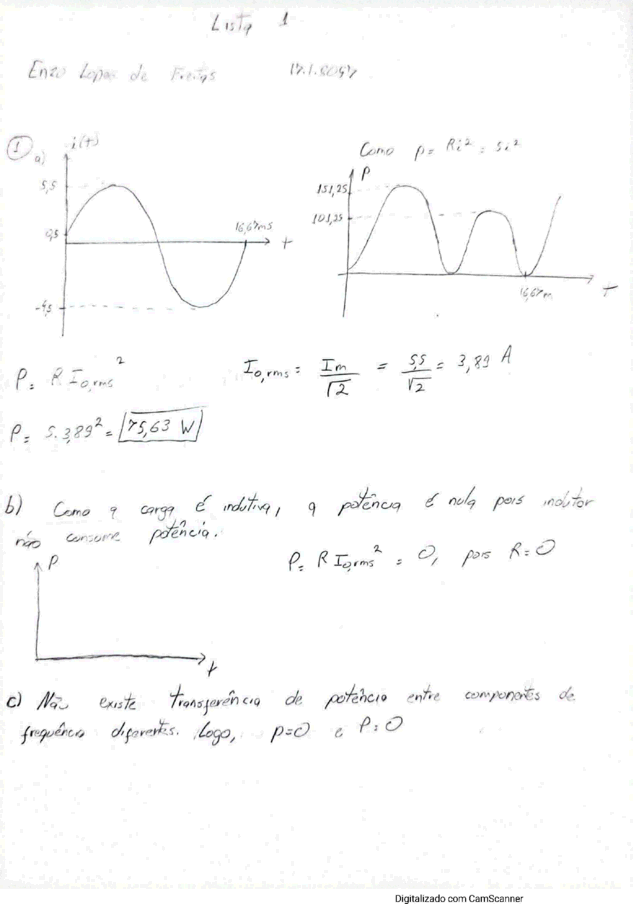 Lista 1
Enzo Lopes de Freitas 17.1.8057
① a) i(t)
5,5
0,5
-4,5
16,67ms
t
Como p = Ri² = 5i²
P
151,25
101,25
16,67m
t
P = R I₀,rms² I₀,rms = Im/√2 = 5,5/√2 = 3,89 A
P = 5.3,89² = 75,63 W
b) Como a carga é indutiva, a potência é nula pois indutor
não consome potência.
P = R I₀,rms² = 0, pois R = 0
P
t
c) Não existe transferência de potência entre componentes de
frequência diferentes. Logo, p=0 e P=0
Digitalizado com CamScanner